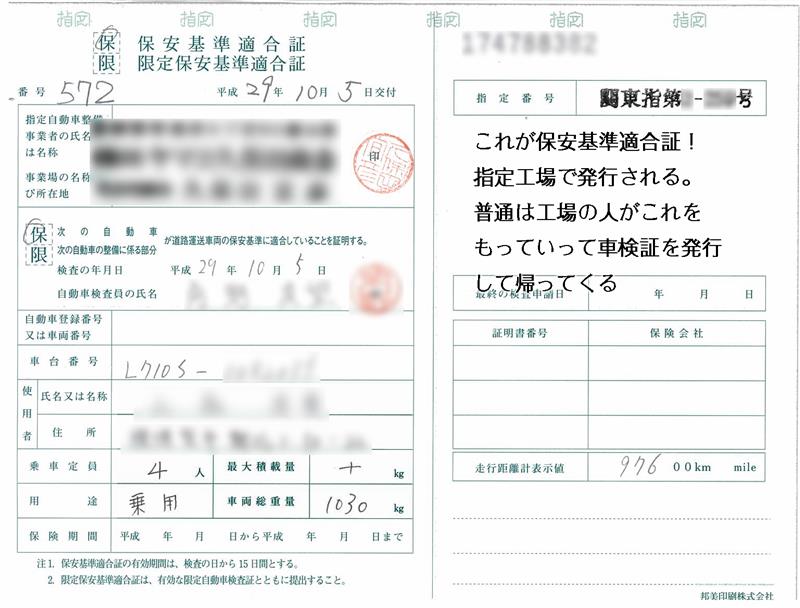 指定 指定 指定 指定 指定 指定
保 保安基準適合証
限 限定保安基準適合証
番号 572 平成 29年 10月 5日交付
指定自動車整備
事業者の氏名
は名称
印
事業場の名称
び所在地
保 次の自動車
限 次の自動車の整備に係る部分
が道路運送車両の保安基準に適合していることを証明する。
検査の年月日 平成 29年 10月 5日
自動車検査員の氏名
自動車登録番号
又は車両番号
車台番号 L710S-
使用者 氏名又は名称
住所
乗車定員 4人 最大積載量 + kg
用途 乗用 車両総重量 1030 kg
保険期間 平成 年 月 日から平成 年 月 日まで
注1. 保安基準適合証の有効期間は、検査の日から15日間とする。
2. 限定保安基準適合証は、有効な限定自動車検査証とともに提出すること。
174788382
指定番号 関東指第 - 号
これが保安基準適合証!
指定工場で発行される。
普通は工場の人がこれを
もっていって車検証を発行
して帰ってくる
最終の検査申請日 年 月 日
証明書番号 保険会社
走行距離計表示値 976 00km mile
邦美印刷株式会社